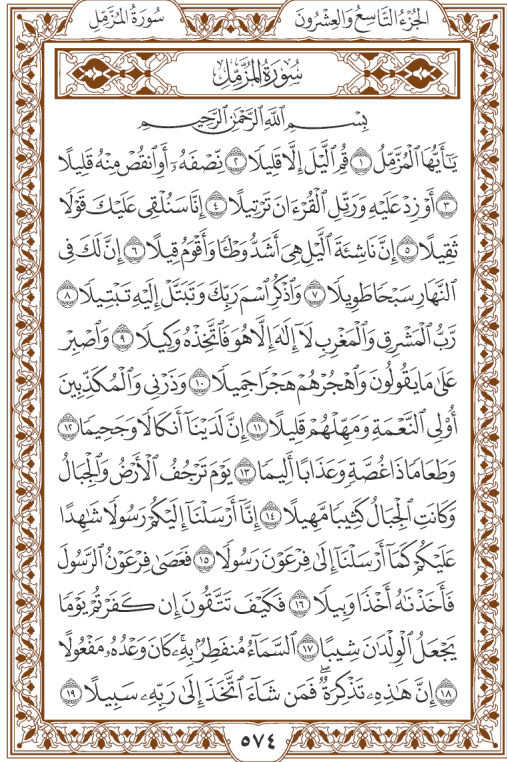 الجُزْءُ التَّاسِعُ وَالعِشْرُونَ
سُورَةُ المُزَّمِّلِ
سُورَةُ المُزَّمِّلِ
بِسۡمِ ٱللَّهِ ٱلرَّحۡمَٰنِ ٱلرَّحِيمِ
يَٰٓأَيُّهَا ٱلۡمُزَّمِّلُ ١ قُمِ ٱلَّيۡلَ إِلَّا قَلِيلٗا ٢ نِّصۡفَهُۥٓ أَوِ ٱنقُصۡ مِنۡهُ قَلِيلًا
٣ أَوۡ زِدۡ عَلَيۡهِ وَرَتِّلِ ٱلۡقُرۡءَانَ تَرۡتِيلًا ٤ إِنَّا سَنُلۡقِي عَلَيۡكَ قَوۡلٗا
ثَقِيلًا ٥ إِنَّ نَاشِئَةَ ٱلَّيۡلِ هِيَ أَشَدُّ وَطۡـٔٗا وَأَقۡوَمُ قِيلًا ٦ إِنَّ لَكَ فِي
ٱلنَّهَارِ سَبۡحٗا طَوِيلٗا ٧ وَٱذۡكُرِ ٱسۡمَ رَبِّكَ وَتَبَتَّلۡ إِلَيۡهِ تَبۡتِيلٗا ٨
رَّبُّ ٱلۡمَشۡرِقِ وَٱلۡمَغۡرِبِ لَآ إِلَٰهَ إِلَّا هُوَ فَٱتَّخِذۡهُ وَكِيلٗا ٩ وَٱصۡبِرۡ
عَلَىٰ مَا يَقُولُونَ وَٱهۡجُرۡهُمۡ هَجۡرٗا جَمِيلٗا ١٠ وَذَرۡنِي وَٱلۡمُكَذِّبِينَ
أُوْلِي ٱلنَّعۡمَةِ وَمَهِّلۡهُمۡ قَلِيلًا ١١ إِنَّ لَدَيۡنَآ أَنكَالٗا وَجَحِيمٗا ١٢
وَطَعَامٗا ذَا غُصَّةٖ وَعَذَابًا أَلِيمٗا ١٣ يَوۡمَ تَرۡجُفُ ٱلۡأَرۡضُ وَٱلۡجِبَالُ
وَكَانَتِ ٱلۡجِبَالُ كَثِيبٗا مَّهِيلًا ١٤ إِنَّآ أَرۡسَلۡنَآ إِلَيۡكُمۡ رَسُولٗا شَٰهِدًا
عَلَيۡكُمۡ كَمَآ أَرۡسَلۡنَآ إِلَىٰ فِرۡعَوۡنَ رَسُولٗا ١٥ فَعَصَىٰ فِرۡعَوۡنُ ٱلرَّسُولَ
فَأَخَذۡنَٰهُ أَخۡذٗا وَبِيلٗا ١٦ فَكَيۡفَ تَتَّقُونَ إِن كَفَرۡتُمۡ يَوۡمٗا
يَجۡعَلُ ٱلۡوِلۡدَٰنَ شِيبًا ١٧ ٱلسَّمَآءُ مُنفَطِرُۢ بِهِۦۚ كَانَ وَعۡدُهُۥ مَفۡعُولًا
١٨ إِنَّ هَٰذِهِۦ تَذۡكِرَةٞۖ فَمَن شَآءَ ٱتَّخَذَ إِلَىٰ رَبِّهِۦ سَبِيلًا ١٩
٥٧٤